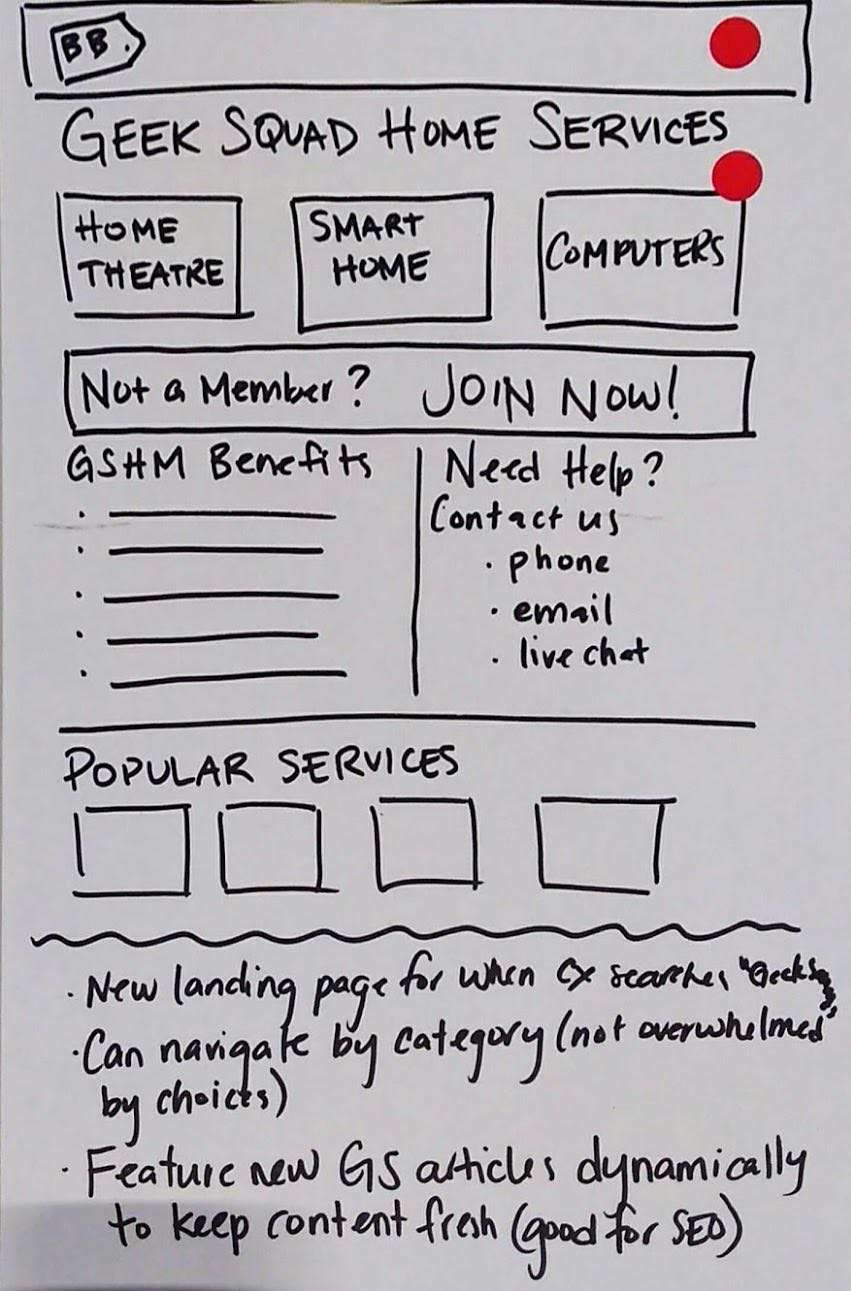 BB
GEEK SQUAD HOME SERVICES
HOME THEATRE
SMART HOME
COMPUTERS
Not a Member? JOIN NOW!
GSHM Benefits
Need Help?
Contact us
· phone
· email
· live chat
POPULAR SERVICES
· New landing page for when cx searches "Geek
· Can navigate by category (not overwhelmed
by choices)
· Feature new GS articles dynamically
to keep content fresh (good for SEO)